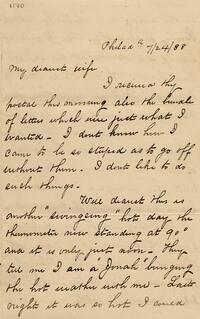 Philada 7/24/88
My dearest wife
I received thy
postal this morning also the bundle
of letters which were just what I
wanted - I dont know how I
came to be so stupid as to go off
without them. I dont like to do
such things.
Well dearest this is
another "swingeing" hot day the
thermometer now standing at 90°
and it is only just noon - They
tell me I am a "Jonah" bringing
the hot weather with me - Last
night it was so hot I could